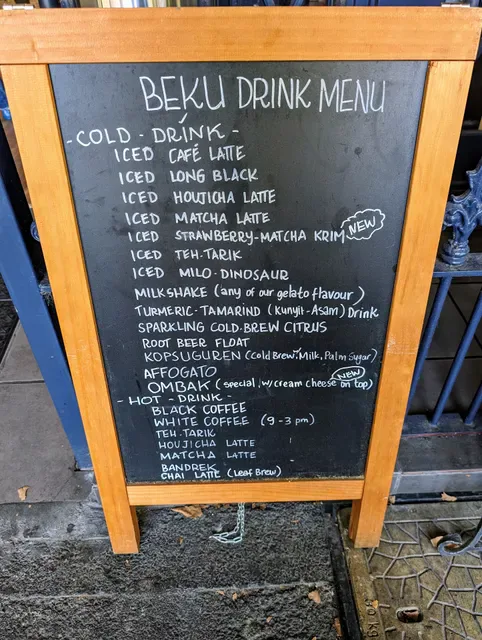 BEKU DRINK MENU
- COLD - DRINK -
ICED CAFÉ LATTE
ICED LONG BLACK
ICED HOUJICHA LATTE
ICED MATCHA LATTE
ICED STRAWBERRY-MATCHA KRIM NEW
ICED TEH-TARIK
ICED MILO-DINOSAUR
MILKSHAKE (any of our gelato flavour)
TURMERIC-TAMARIND (Kunyit-Asam) Drink
SPARKLING COLD-BREW CITRUS
ROOT BEER FLOAT
KOPSUGUREN (Cold Brew, Milk, Palm Sugar)
AFFOGATO NEW
OMBAK (special, w/cream cheese on top)
- HOT - DRINK -
BLACK COFFEE
WHITE COFFEE (9-3pm)
TEH-TARIK
HOUJICHA LATTE
MATCHA LATTE
BANDREK
CHAI LATTE (Leaf Brew)